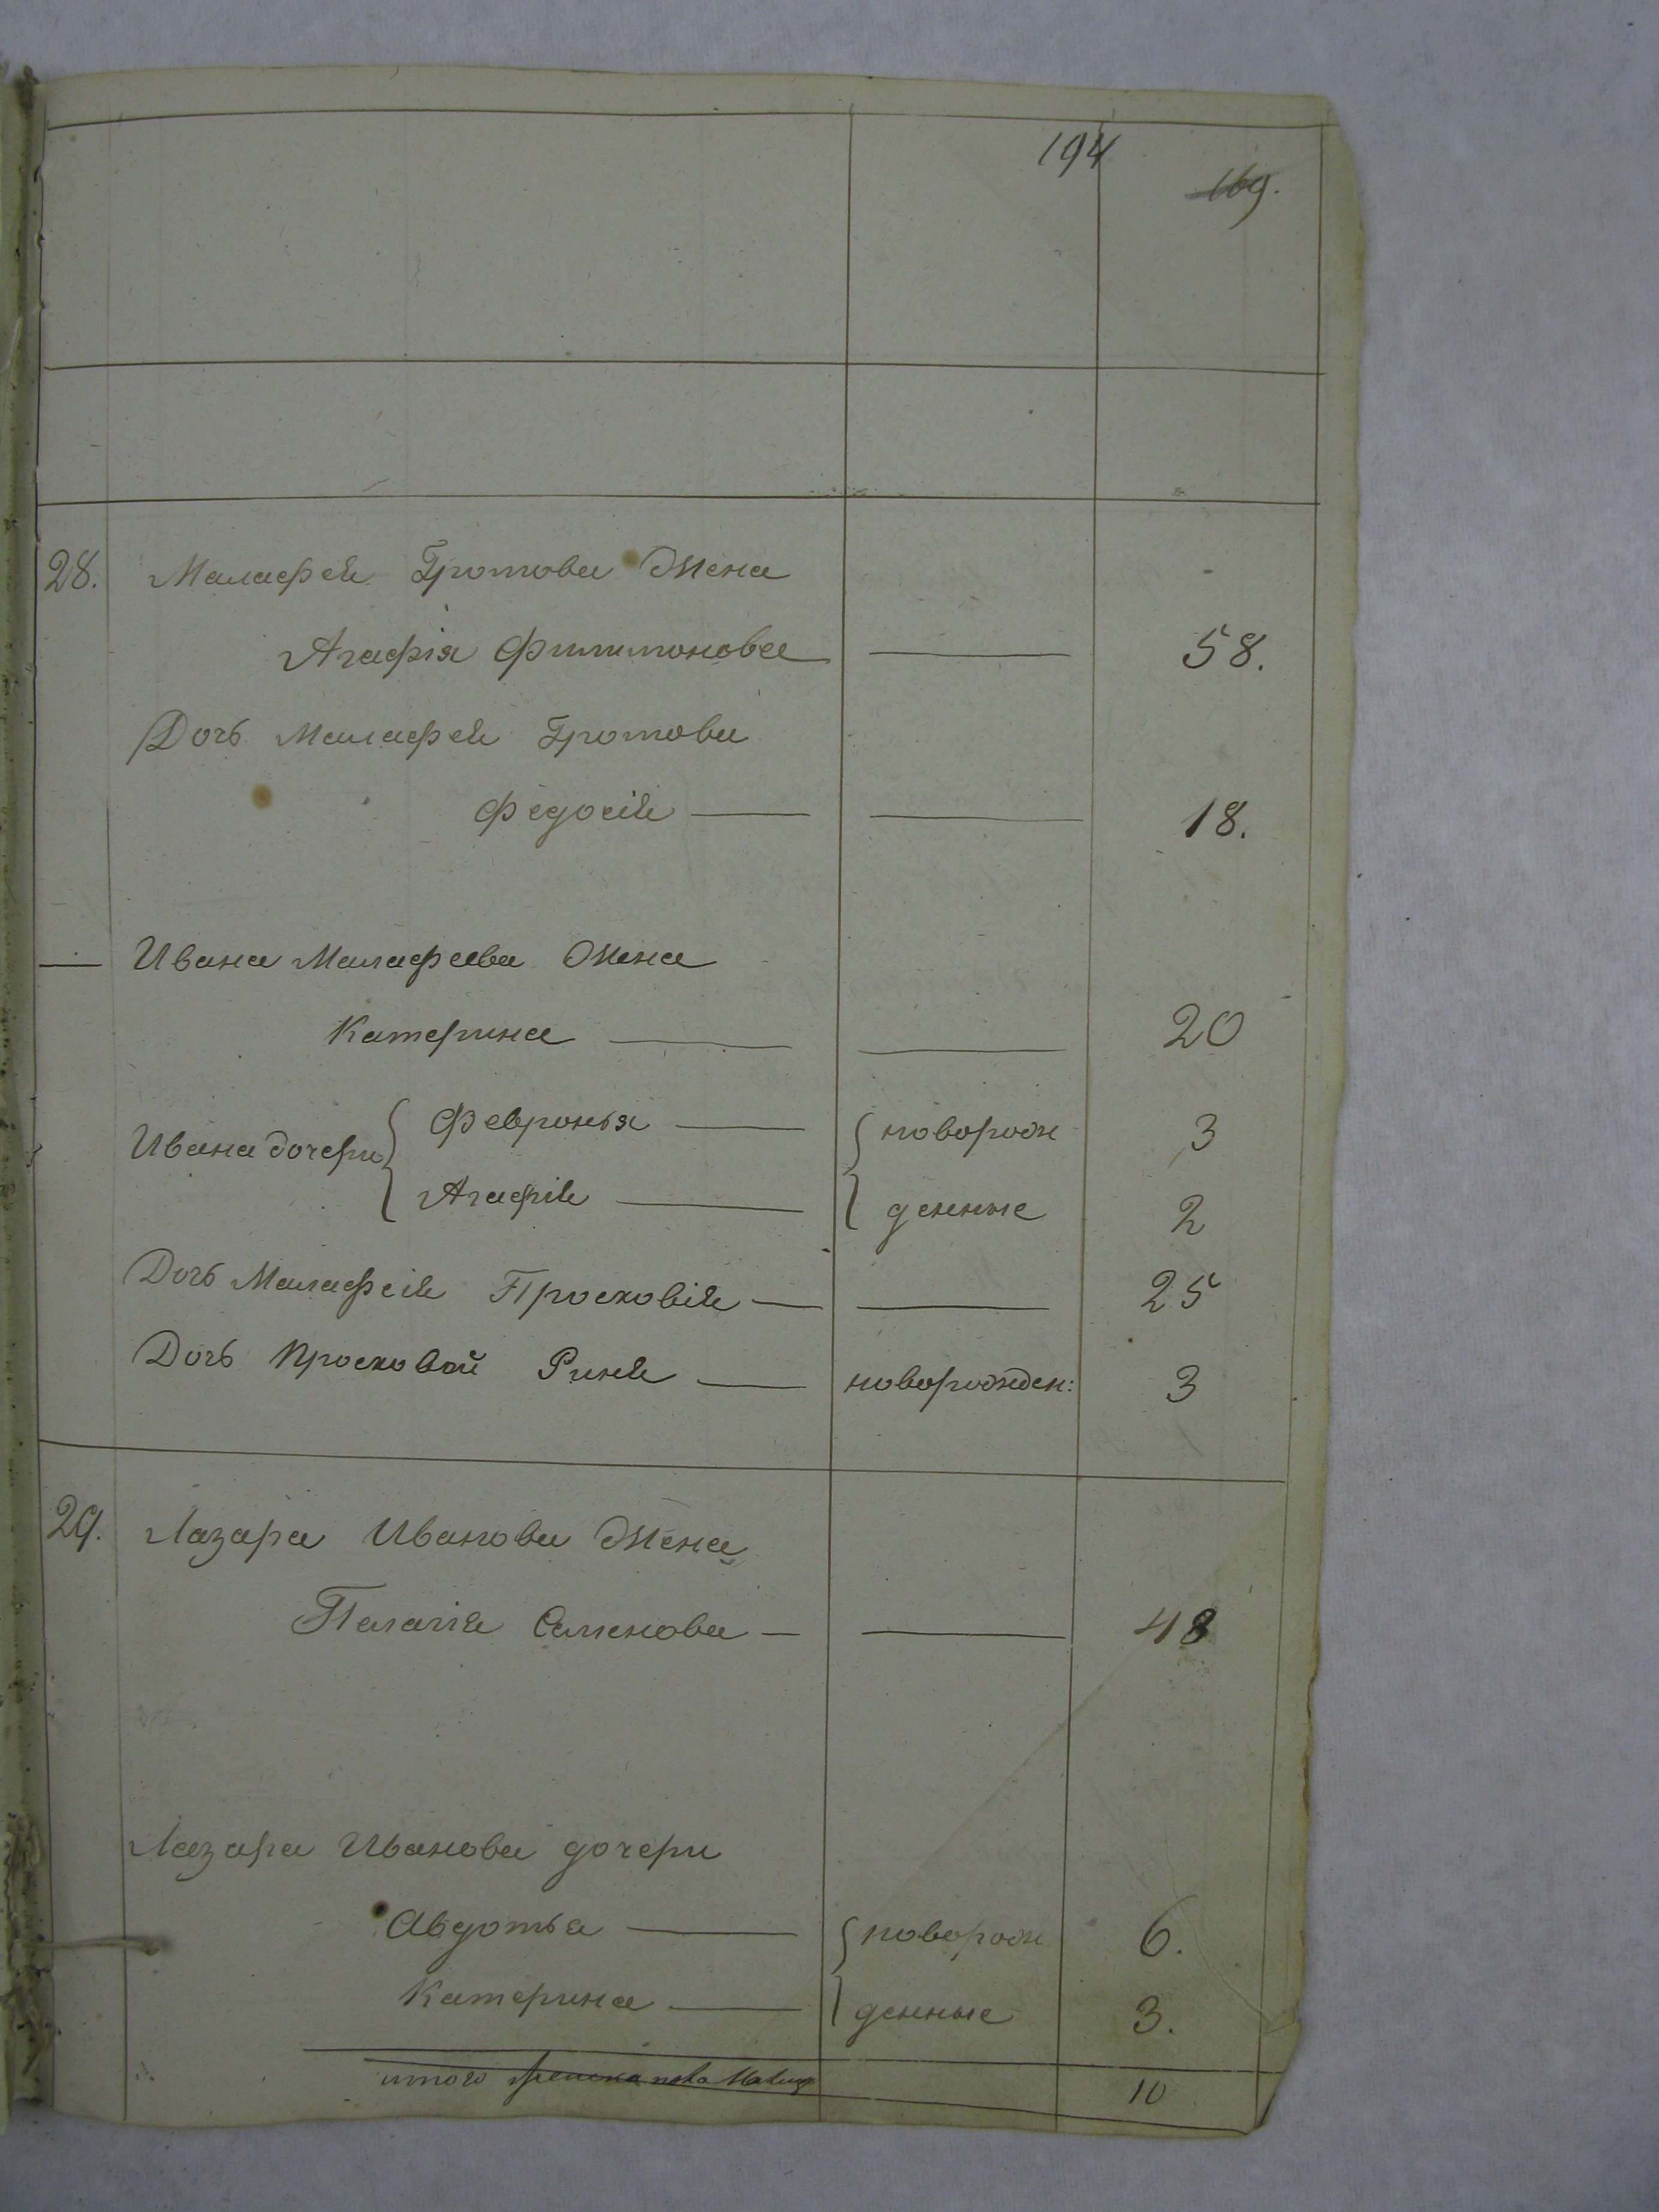 194
169.
28. Малафея Громова Жена
Агафія Филимонова 58.
Дочь Малафея Громова
Федосія 18.
Ивана Малафеева Жена
Катерина 20
Ивана дочери Февронья новорож 3
Агафія денные 2
Дочь Малафея Просковія 25
Дочь Просковьи новорожден: 3
29. Лазара Иванова Жена
Палагія Семенова 48
Лазара Иванова дочери
Авдотья новорож 6.
Катерина денные 3.
итого 10